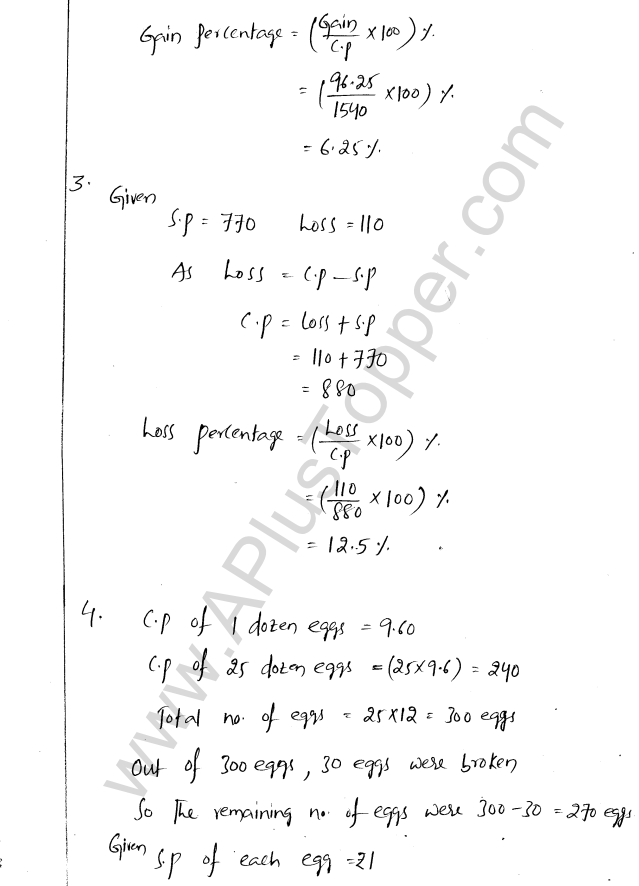 Gain percentage = (Gain/C.p × 100) %.
= (96.25/1540 × 100) %.
= 6.25 %.
3.
Given
S.p = 770 Loss = 110
As Loss = C.p – S.p
C.p = Loss + S.p
= 110 + 770
= 880
Loss percentage = (Loss/C.p × 100) %.
= (110/880 × 100) %.
= 12.5 %.
4. C.p of 1 dozen eggs = 9.60
C.p of 25 dozen eggs = (25×9.6) = 240
Total no. of eggs = 25×12 = 300 eggs
Out of 300 eggs, 30 eggs were broken
So The remaining no. of eggs were 300-30 = 270 eggs.
Given S.p of each egg = ₹1
www.APlusTopper.com